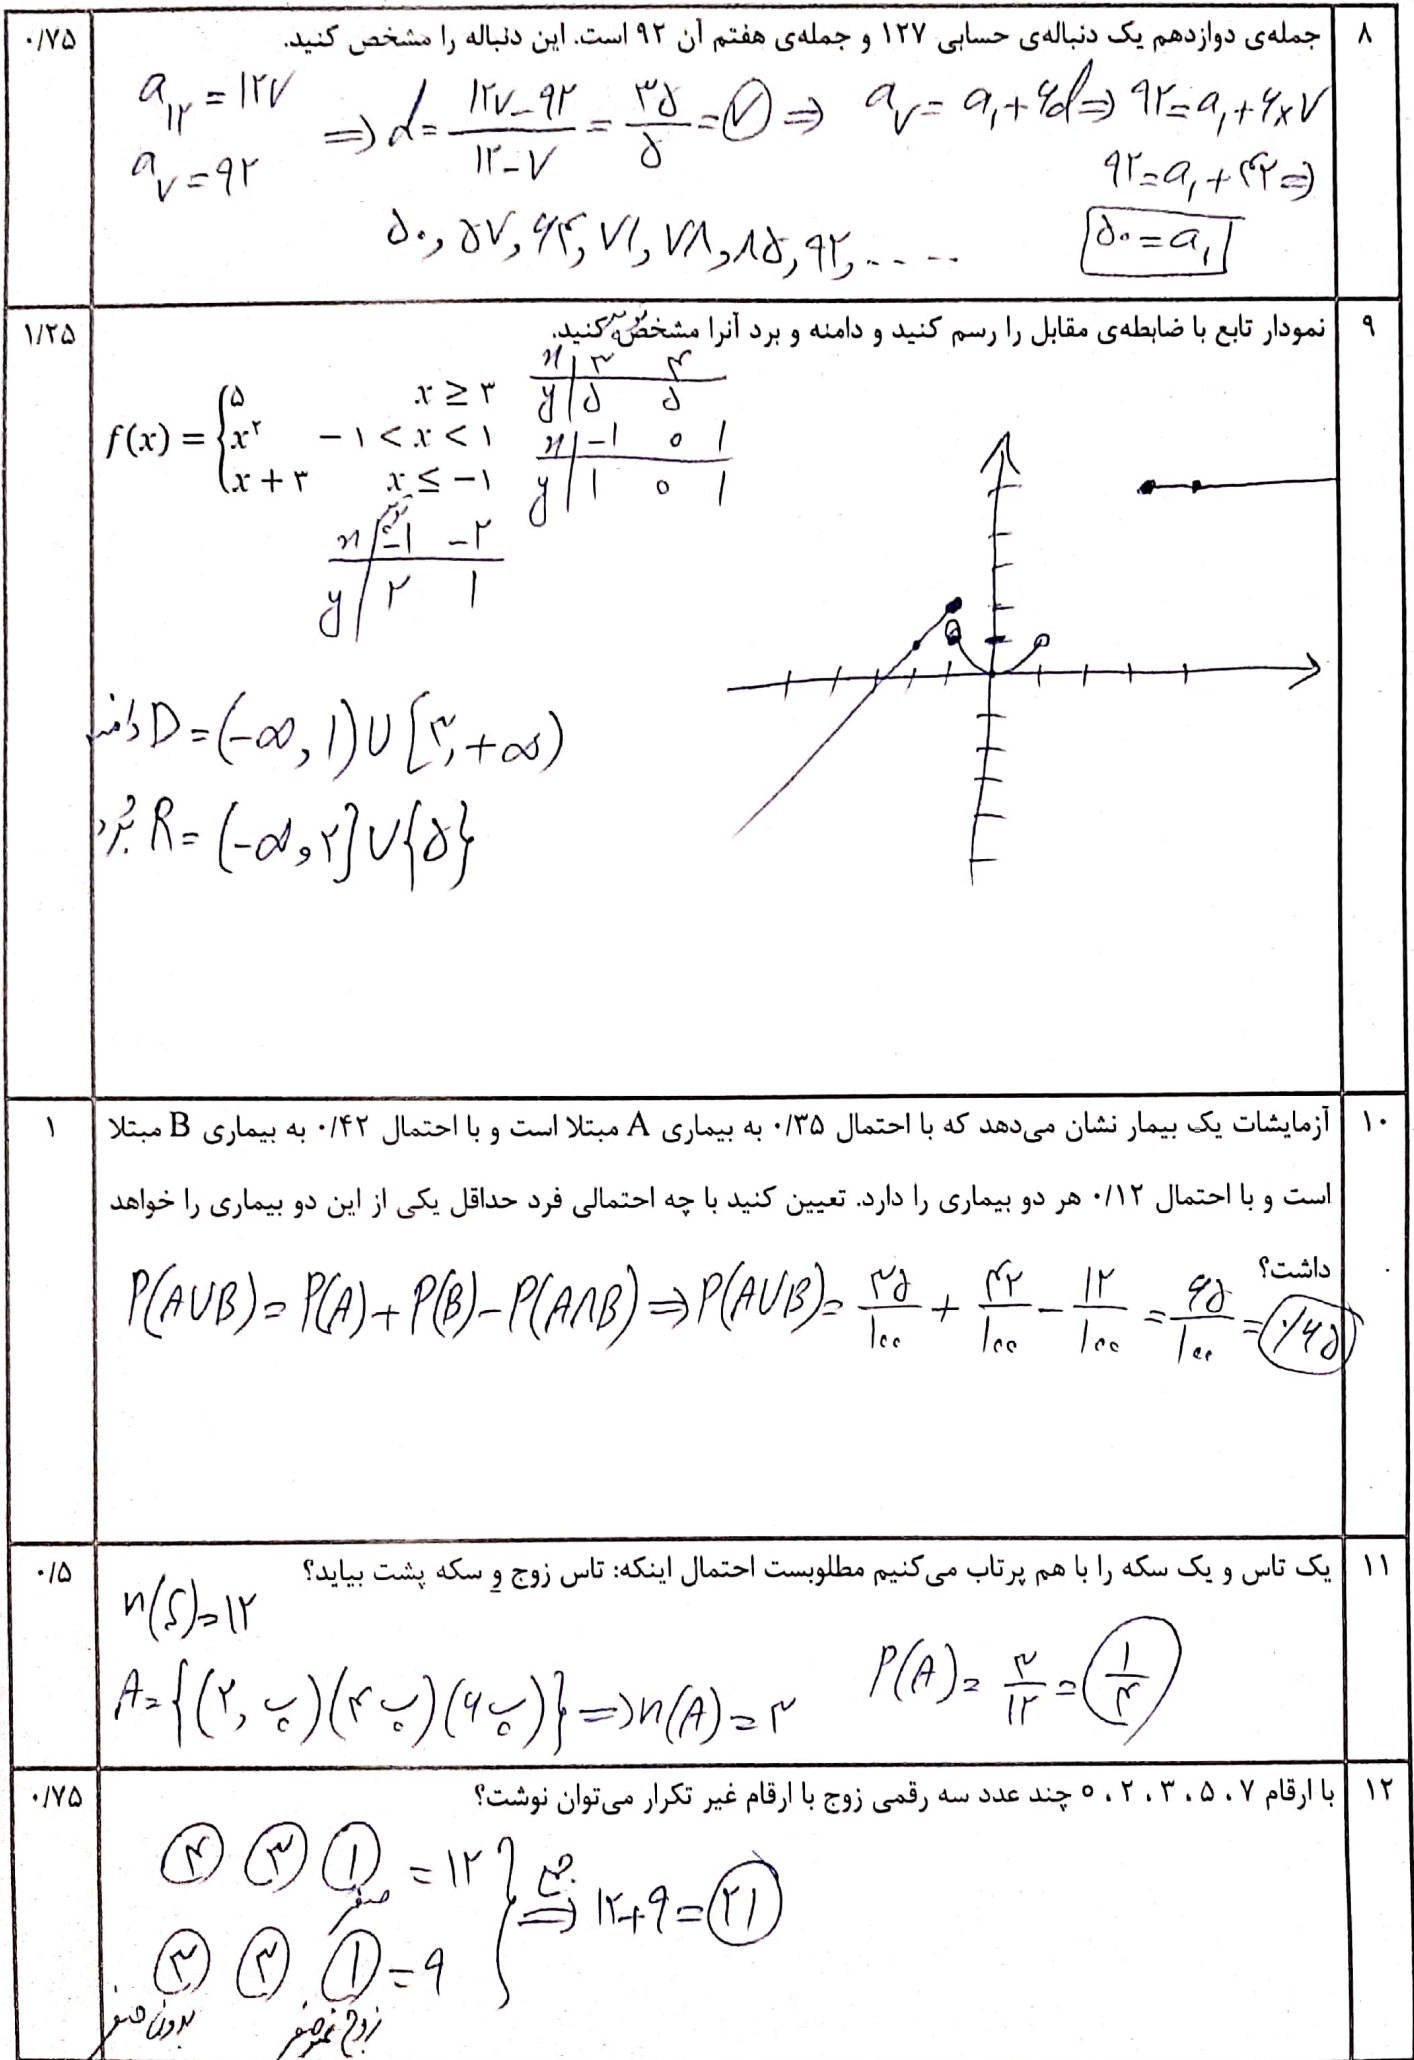 ۸ جمله‌ی دوازدهم یک دنباله‌ی حسابی ۱۲۷ و جمله‌ی هفتم آن ۹۲ است. این دنباله را مشخص کنید. ۰/۷۵
a₁₂ = ۱۲۷
a₇ = ۹۲
⇒ d = (۱۲۷ - ۹۲)/(۱۲ - ۷) = ۳۵/۵ = ۷ ⇒ a₇ = a₁ + ۶d ⇒ ۹۲ = a₁ + ۶×۷
۹۲ = a₁ + ۴۲ ⇒
۵۰ = a₁
۵۰, ۵۷, ۶۴, ۷۱, ۷۸, ۸۵, ۹۲, ....
۹ نمودار تابع با ضابطه‌ی مقابل را رسم کنید و دامنه و برد آنرا مشخص کنید. ۱/۲۵
f(x) = {
۵ x ≥ ۳
x۲ - ۱ < x < ۱
x + ۳ x ≤ -۱
x | ۳ ۴
y | ۵ ۵
x | -۱ ۰ ۱
y | ۱ ۰ ۱
توپر
x | -۱ -۲
y | ۲ ۱
دامنه D = (-∞, ۱) ∪ [۳, +∞)
بُرد R = (-∞, ۲] ∪ {۵}
۱۰ آزمایشات یک بیمار نشان می‌دهد که با احتمال ۰/۳۵ به بیماری A مبتلا است و با احتمال ۰/۴۲ به بیماری B مبتلا ۱
است و با احتمال ۰/۱۲ هر دو بیماری را دارد. تعیین کنید با چه احتمالی فرد حداقل یکی از این دو بیماری را خواهد
داشت؟
P(A∪B) = P(A) + P(B) - P(A∩B) ⇒ P(A∪B) = ۳۵/۱۰۰ + ۴۲/۱۰۰ - ۱۲/۱۰۰ = ۶۵/۱۰۰ = ۰/۶۵
۱۱ یک تاس و یک سکه را با هم پرتاب می‌کنیم مطلوبست احتمال اینکه: تاس زوج و سکه پشت بیاید؟ ۰/۵
n(S) = ۱۲
A = {(۲, پ) (۴ پ) (۶ پ)} ⇒ n(A) = ۳
P(A) = ۳/۱۲ = ۱/۴
۱۲ با ارقام ۷ ، ۵ ، ۳ ، ۲ ، ۰ چند عدد سه رقمی زوج با ارقام غیر تکرار می‌توان نوشت؟ ۰/۷۵
۴ ۳ ۱ = ۱۲
صفر
جمع ⇒ ۱۲+۹ = ۲۱
۳ ۳ ۱ = ۹
بدون صفر زوج غیر صفر